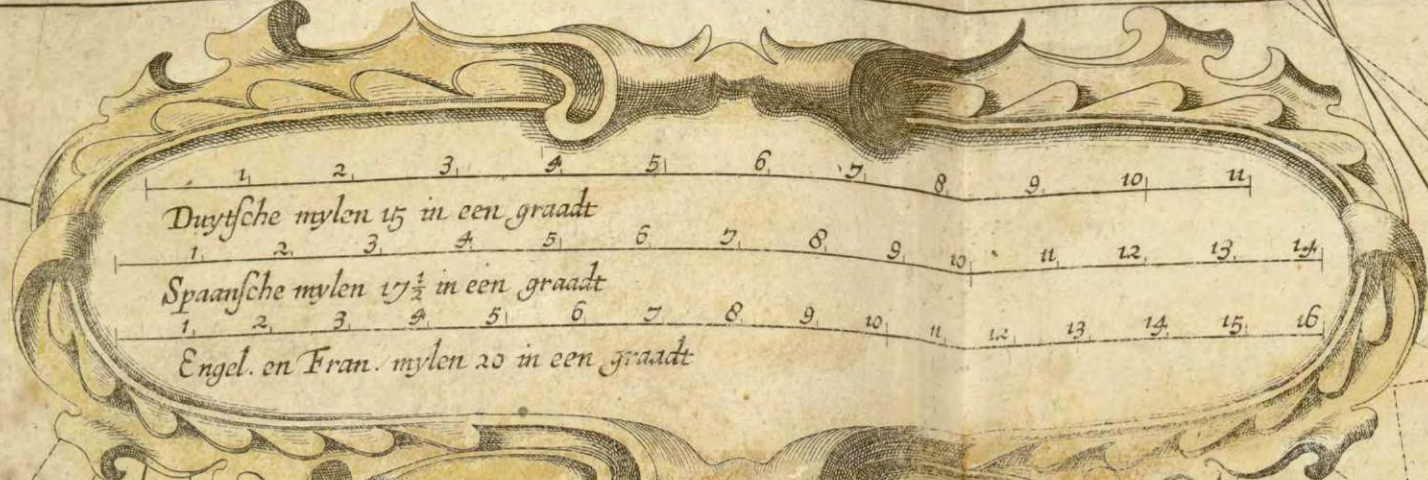 1 2 3 4 5 6 7 8 9 10 11
Duytſche mylen 15 in een graadt
1 2 3 4 5 6 7 8 9 10 11 12 13 14
Spaanſche mylen 17½ in een graadt
1 2 3 4 5 6 7 8 9 10 11 12 13 14 15 16
Engel. en Fran. mylen 20 in een graadt